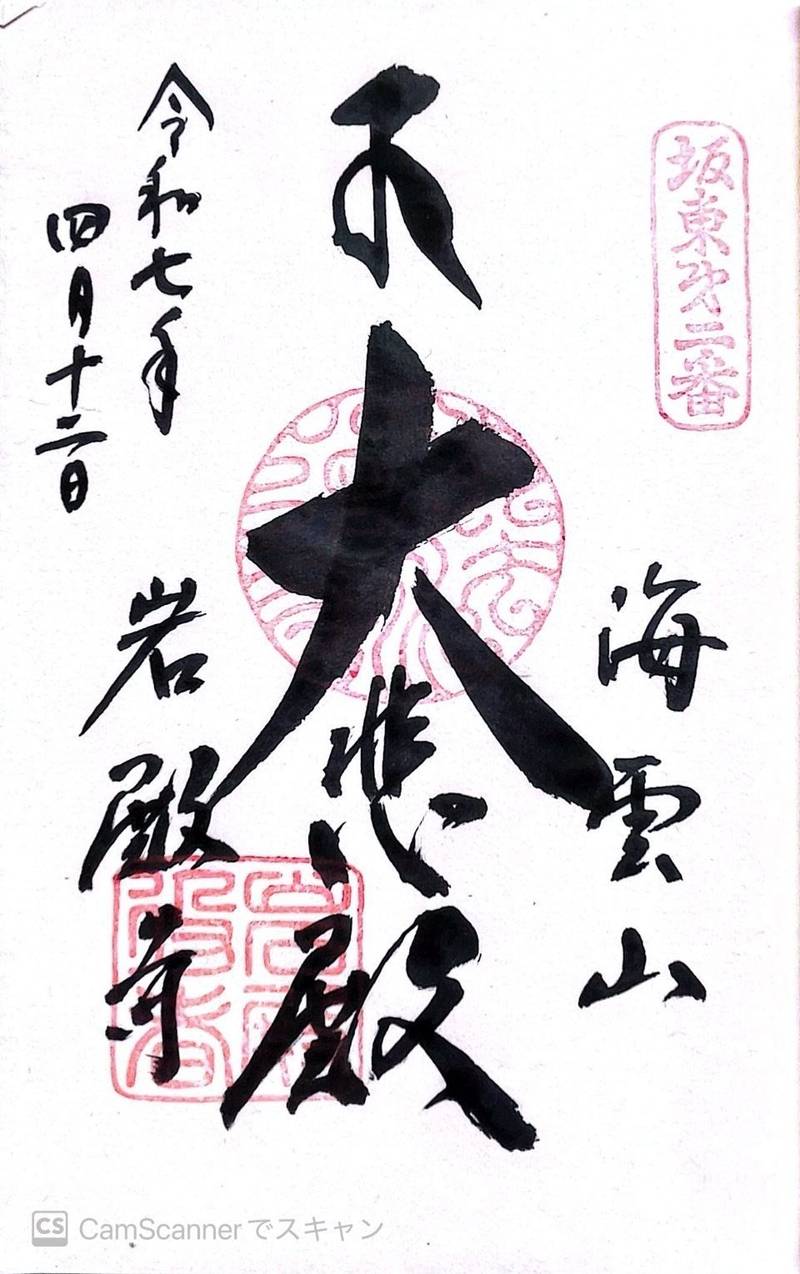 坂東第二番
海雲山
大悲殿
岩殿寺
令和七年
四月十二日
CS CamScannerでスキャン